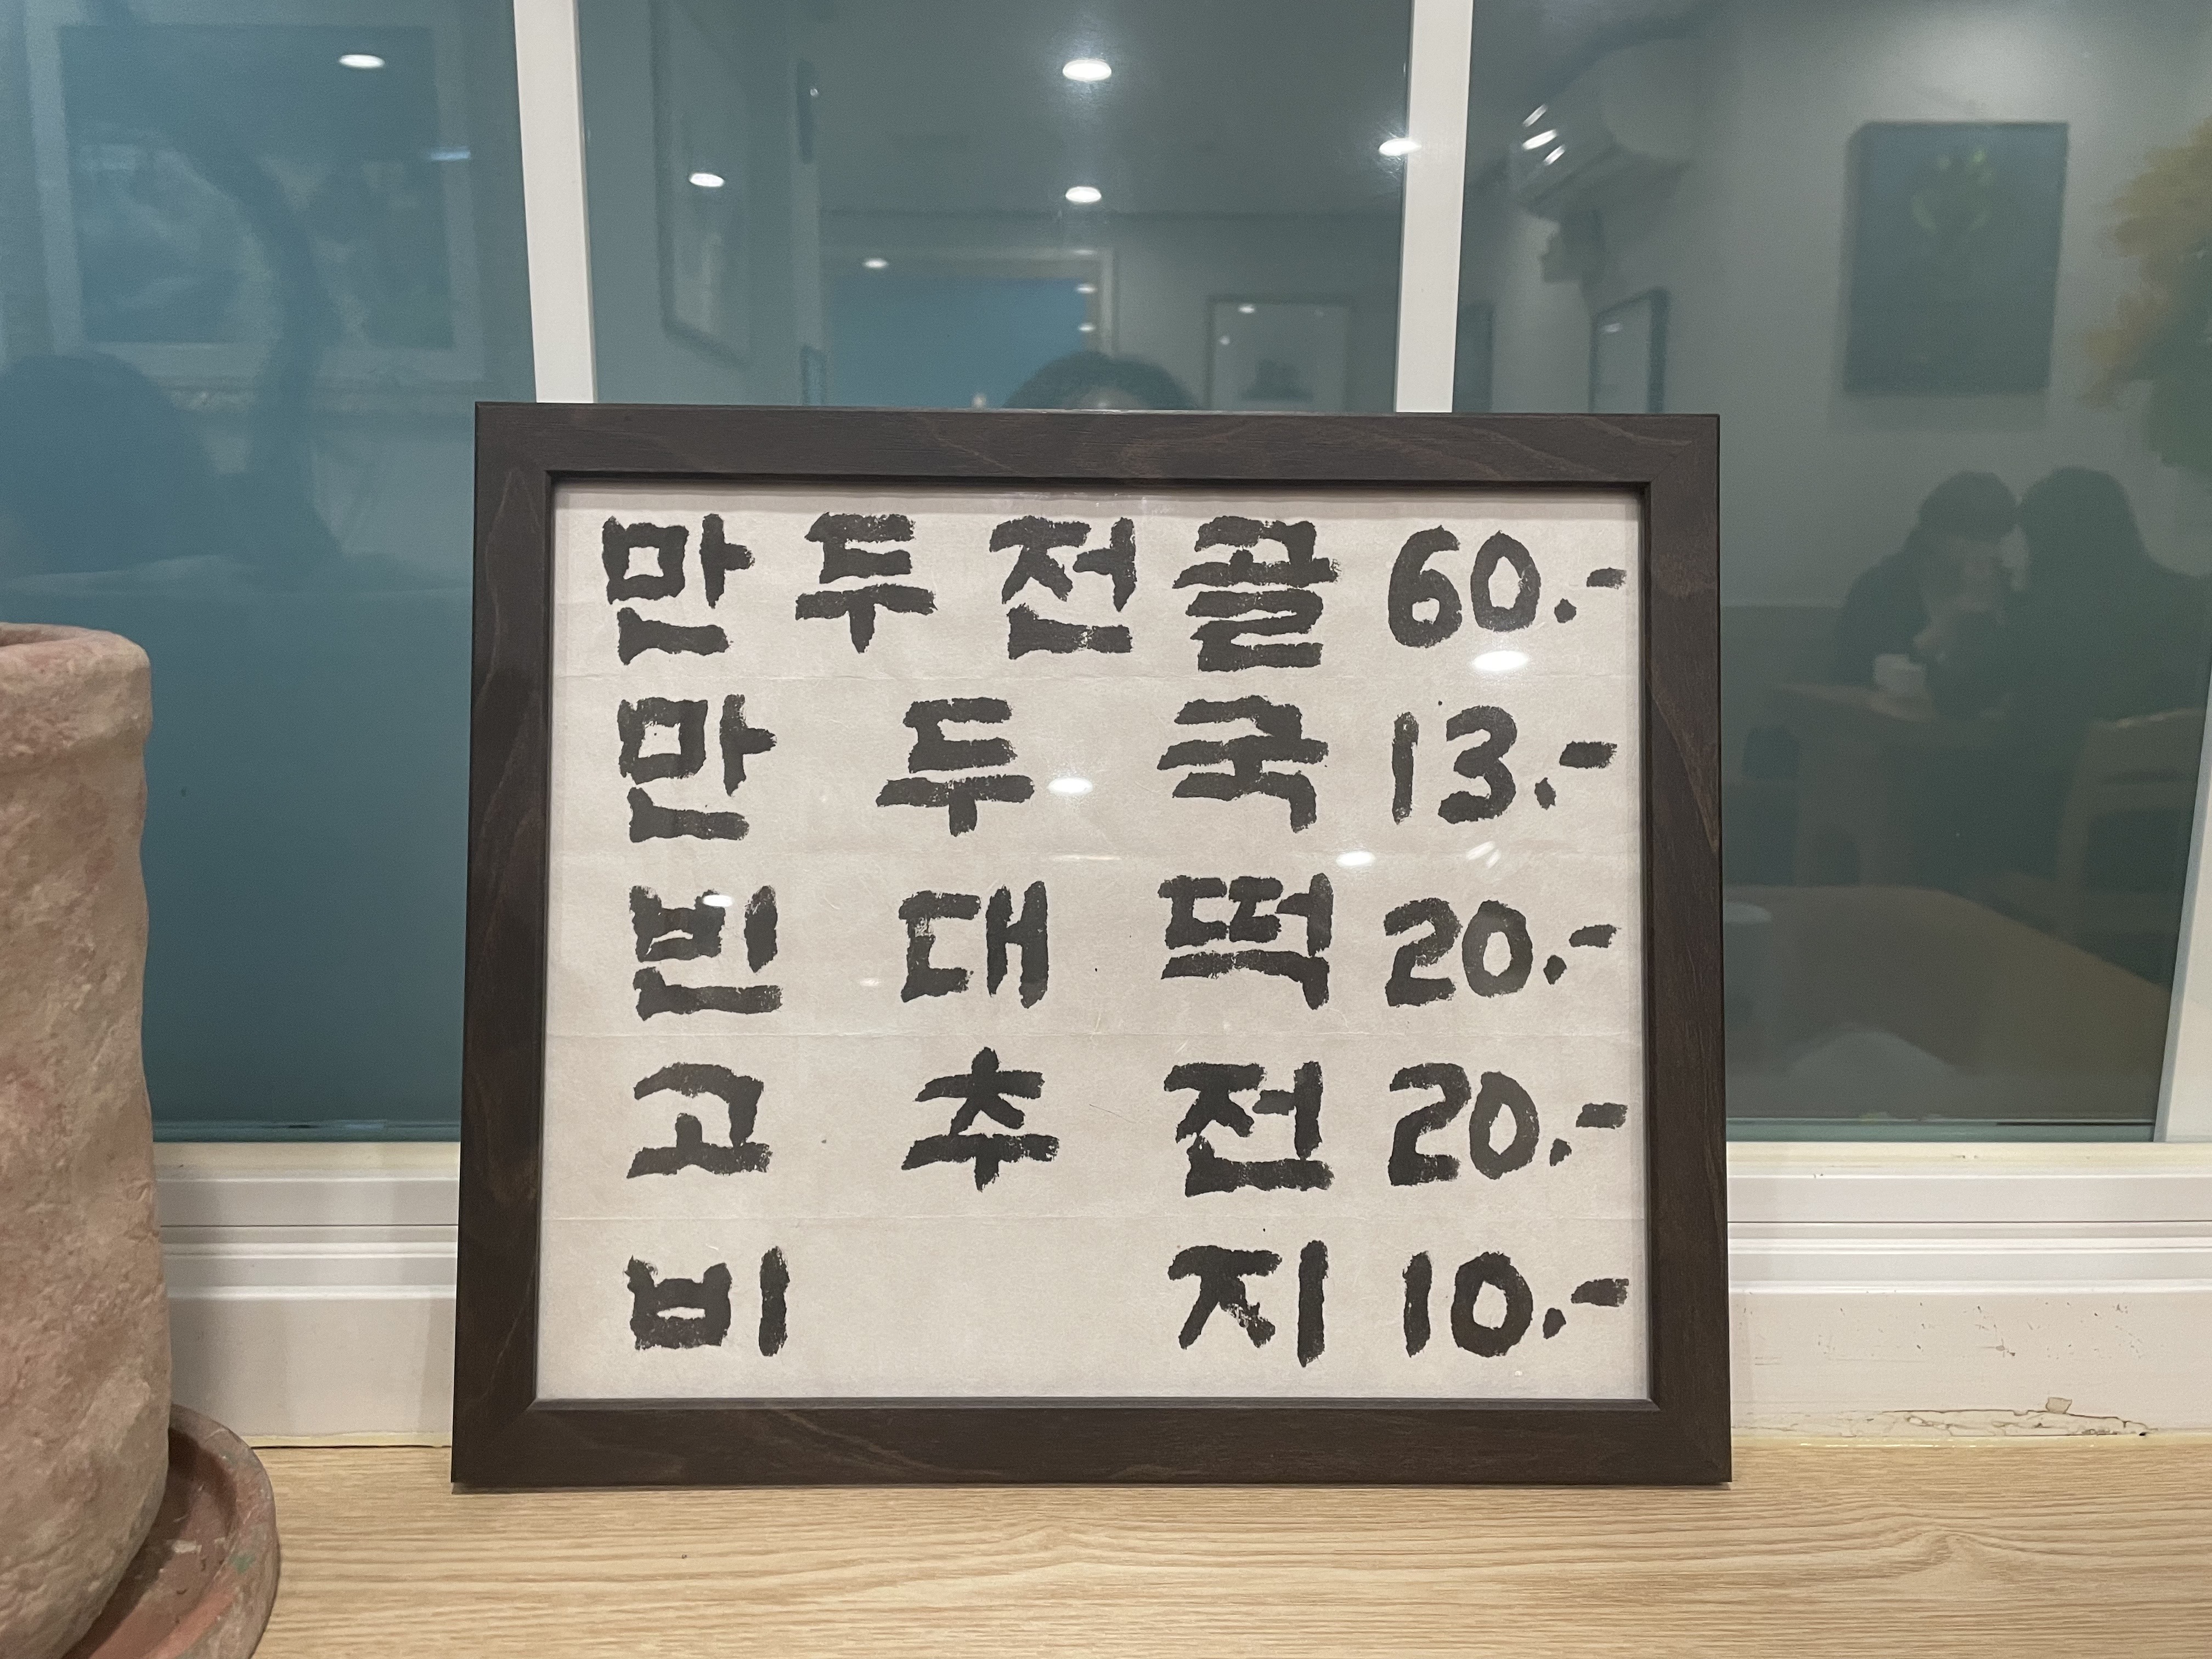 만두전골 60.-
만두국 13.-
빈대떡 20.-
고추전 20.-
비지 10.-